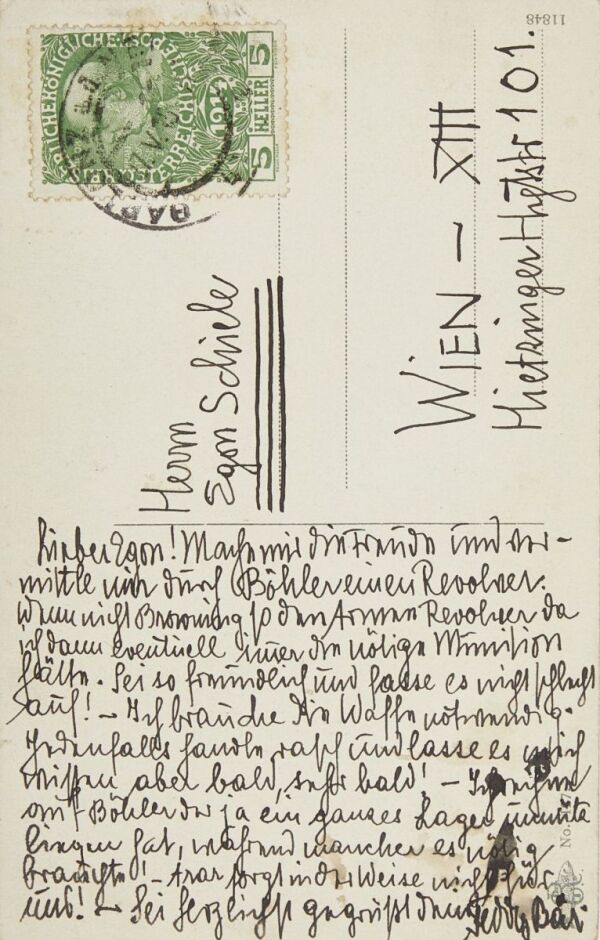 11848
5 HELLER 5
1912
WIEN – XIII
Hietzinger Hptstr 101.
Herrn
Egon Schiele
Lieber Egon! Mache mir die Freude und ver-
mittle mir durch Böhler einen Revolver.
Wenn nicht Browning so den Armee Revolver da
ich dann eventuell immer die nötige Munition
hätte. Sei so freundlich und fasse es nicht schlecht
auf! – Ich brauche die Waffe notwendig.
Jedenfalls handle rasch und lasse es mich
wissen aber bald, sehr bald! – Ich rechne
auf Böhler der ja ein ganzes Lager unnütz
liegen hat, während mancher es nötig
brauchte! – Arar sorgt in der Weise nicht für
uns! – Sei herzlichst gegrüßt dein Teddy Bär
No.